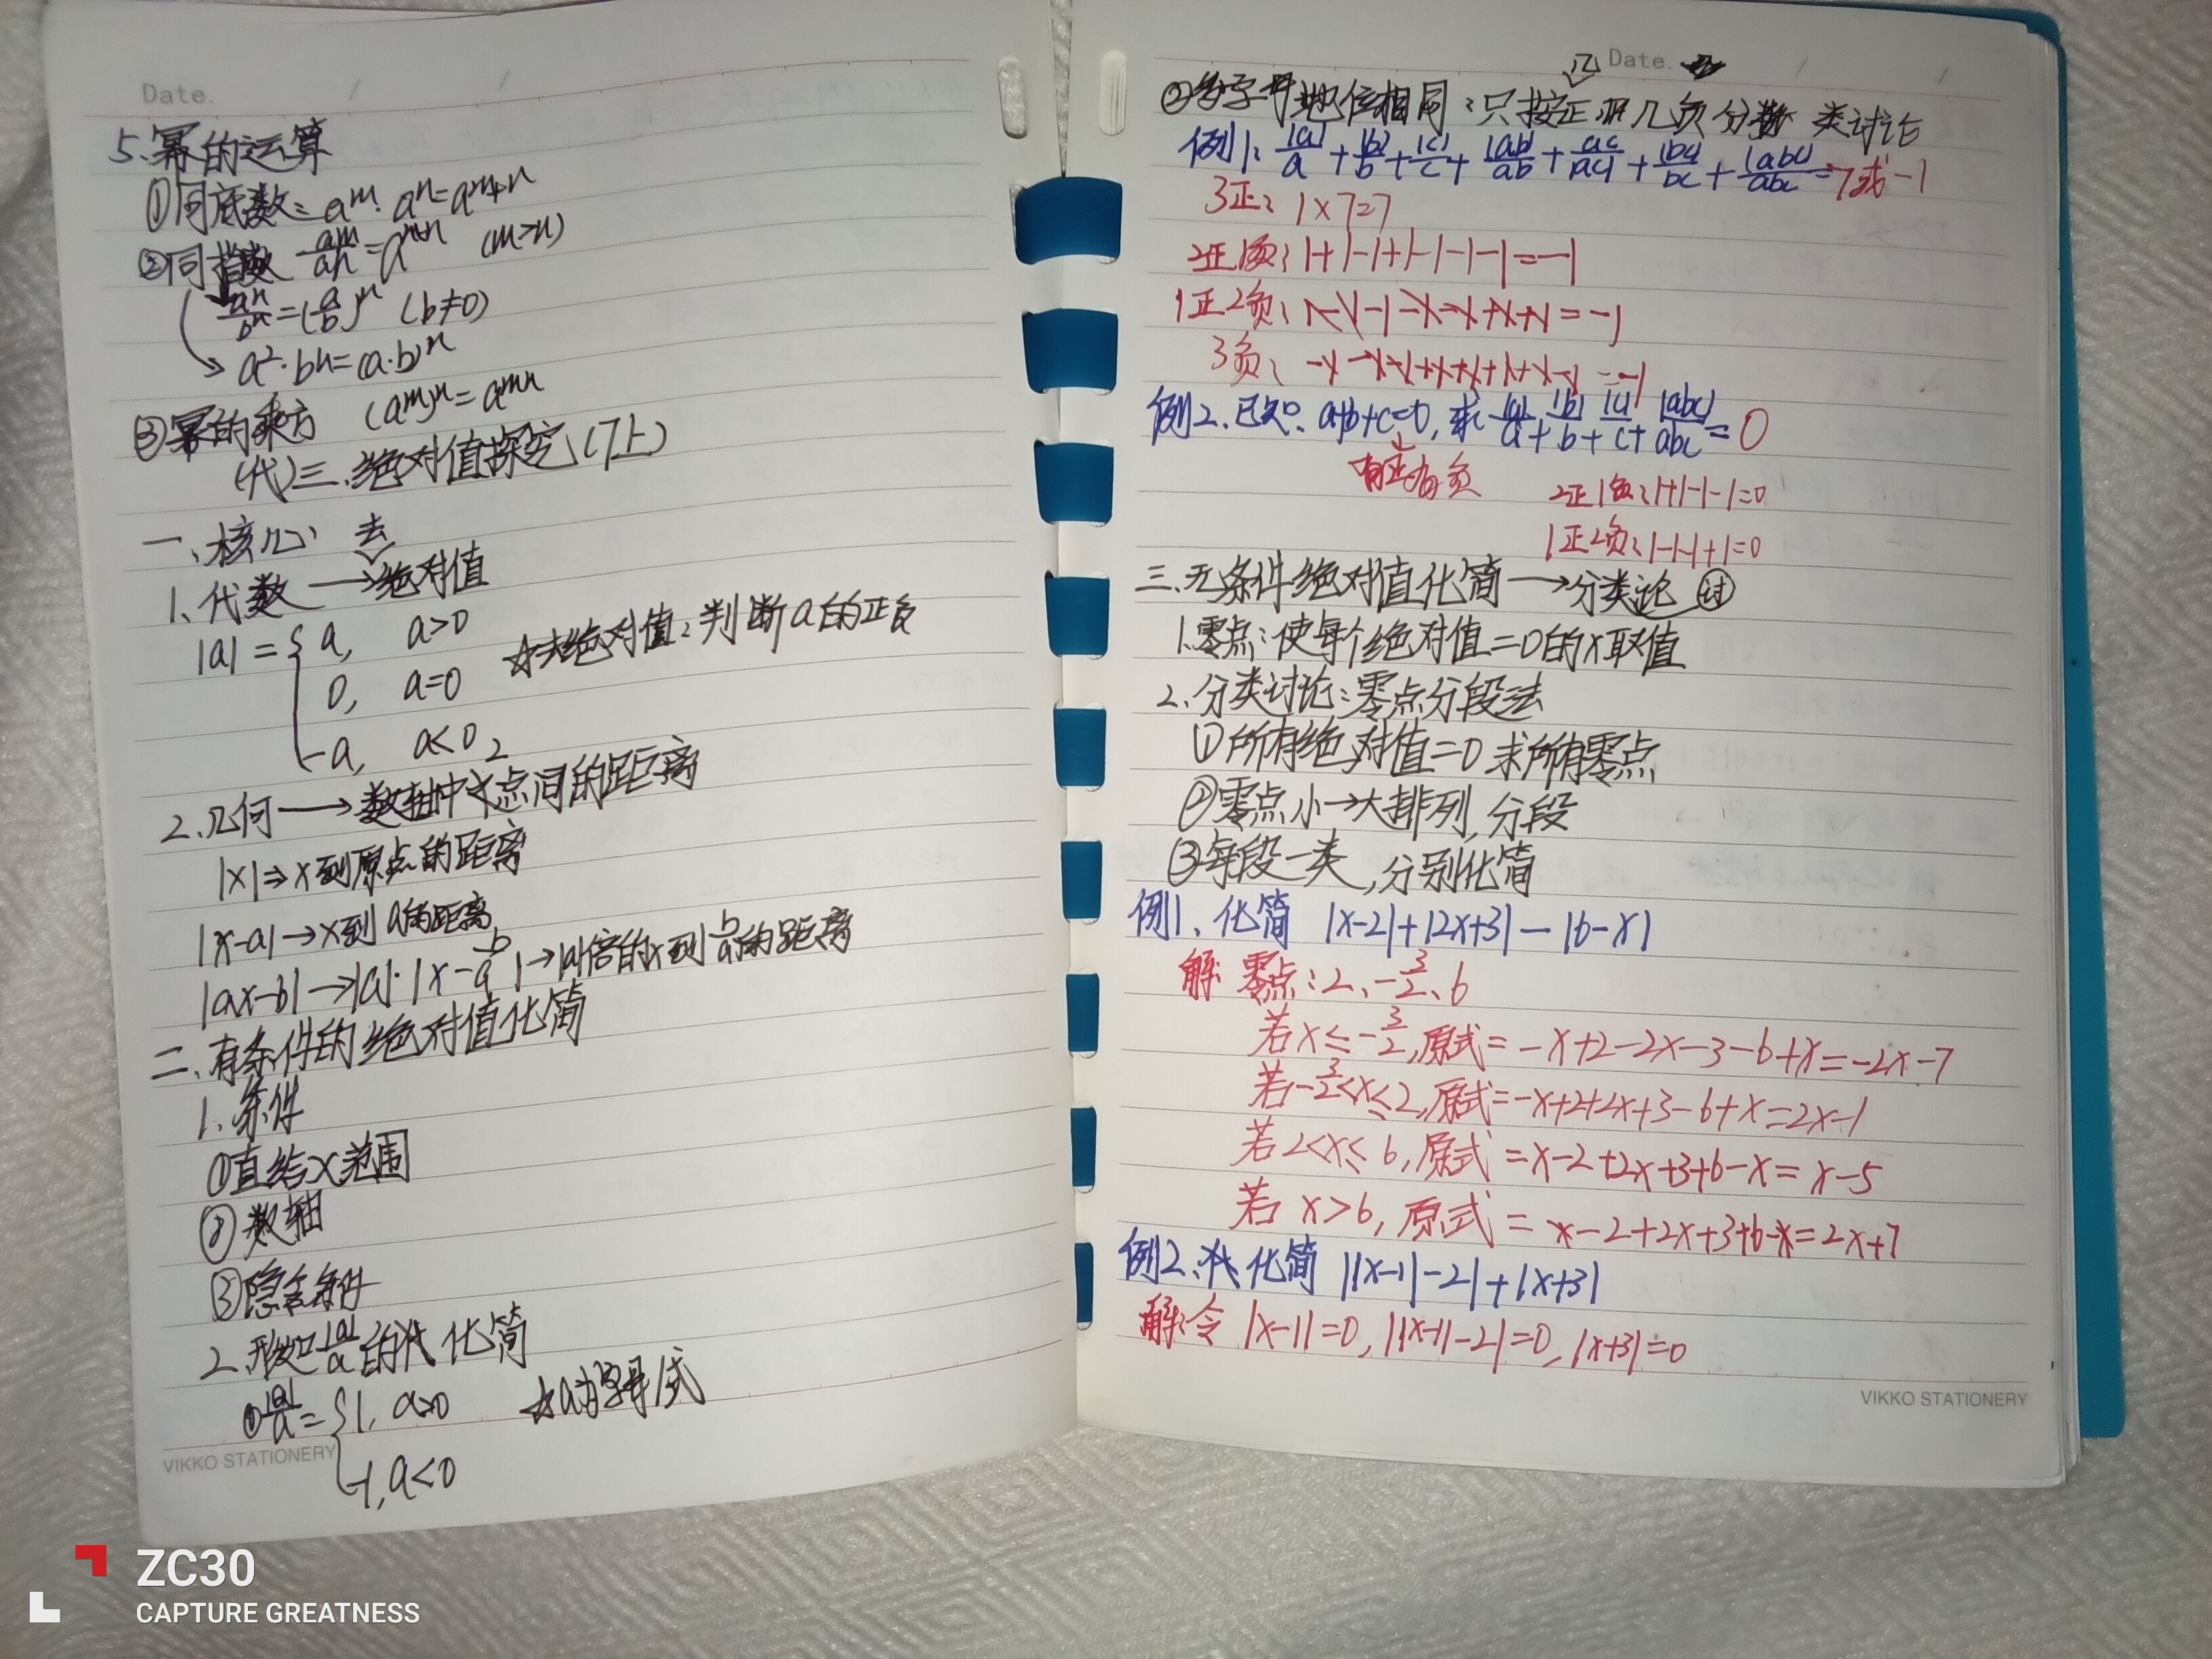 Date. / /
5.幂的运算
①同底数: aᵐ·aⁿ=aᵐ⁺ⁿ
②同指数 aᵐ/aⁿ=aᵐ⁻ⁿ (m>n)
aⁿ/bⁿ=(a/b)ⁿ (b≠0)
→a²·bⁿ=(a·b)ⁿ
③幂的乘方 (aᵐ)ⁿ=aᵐⁿ
(代)三.绝对值探究(7上)
一、核心 去
1、代数→绝对值
|a|={a, a>0
☆去绝对值:判断a的正负
0, a=0
-a, a<0
2.几何→数轴中2点间的距离
|x|⇒x到原点的距离
|x-a|→x到a的距离
|ax-b|→|a|·|x-b/a|→|a|倍的x到b/a的距离
二、有条件的绝对值化简
1.条件
①直给x范围
②数轴
③隐含条件
2.形如|a|/a的化简
①|a|/a={1, a>0 ☆a为字母/式
-1, a<0
VIKKO STATIONERY
Date. / /
②多字母地位相同:只按几正几负分类讨论
例1:|a|/a+|b|/b+|c|/c+|ab|/ab+ac/|ac|+|bc|/bc+|abc|/abc=7或-1
3正:1×7=7
2正1负:1+1-1+1-1-1-1=-1
1正2负: =-1
3负: =-1
例2.已知:a+b+c=0,求|a|/a+|b|/b+|c|/c+|abc|/abc=0
有正有负
2正1负:1+1-1-1=0
1正2负:1-1-1+1=0
三.无条件绝对值化简→分类论 讨
1.零点:使每个绝对值=0的x取值
2.分类讨论:零点分段法
①所有绝对值=0求所有零点
②零点小→大排列,分段
③每段一类,分别化简
例1、化简 |x-2|+|2x+3|-|6-x|
解:零点:2、-3/2、6
若x≤-3/2,原式=-x+2-2x-3-6+x=-2x-7
若-3/2<x≤2,原式=-x+2+2x+3-6+x=2x-1
若2<x≤6,原式=x-2+2x+3+6-x=x-5
若x>6,原式=x-2+2x+3+6-x=2x+7
例2、化简||x-1|-2|+|x+3|
解:令|x-1|=0,||x-1|-2|=0,|x+3|=0
VIKKO STATIONERY
ZC30
CAPTURE GREATNESS